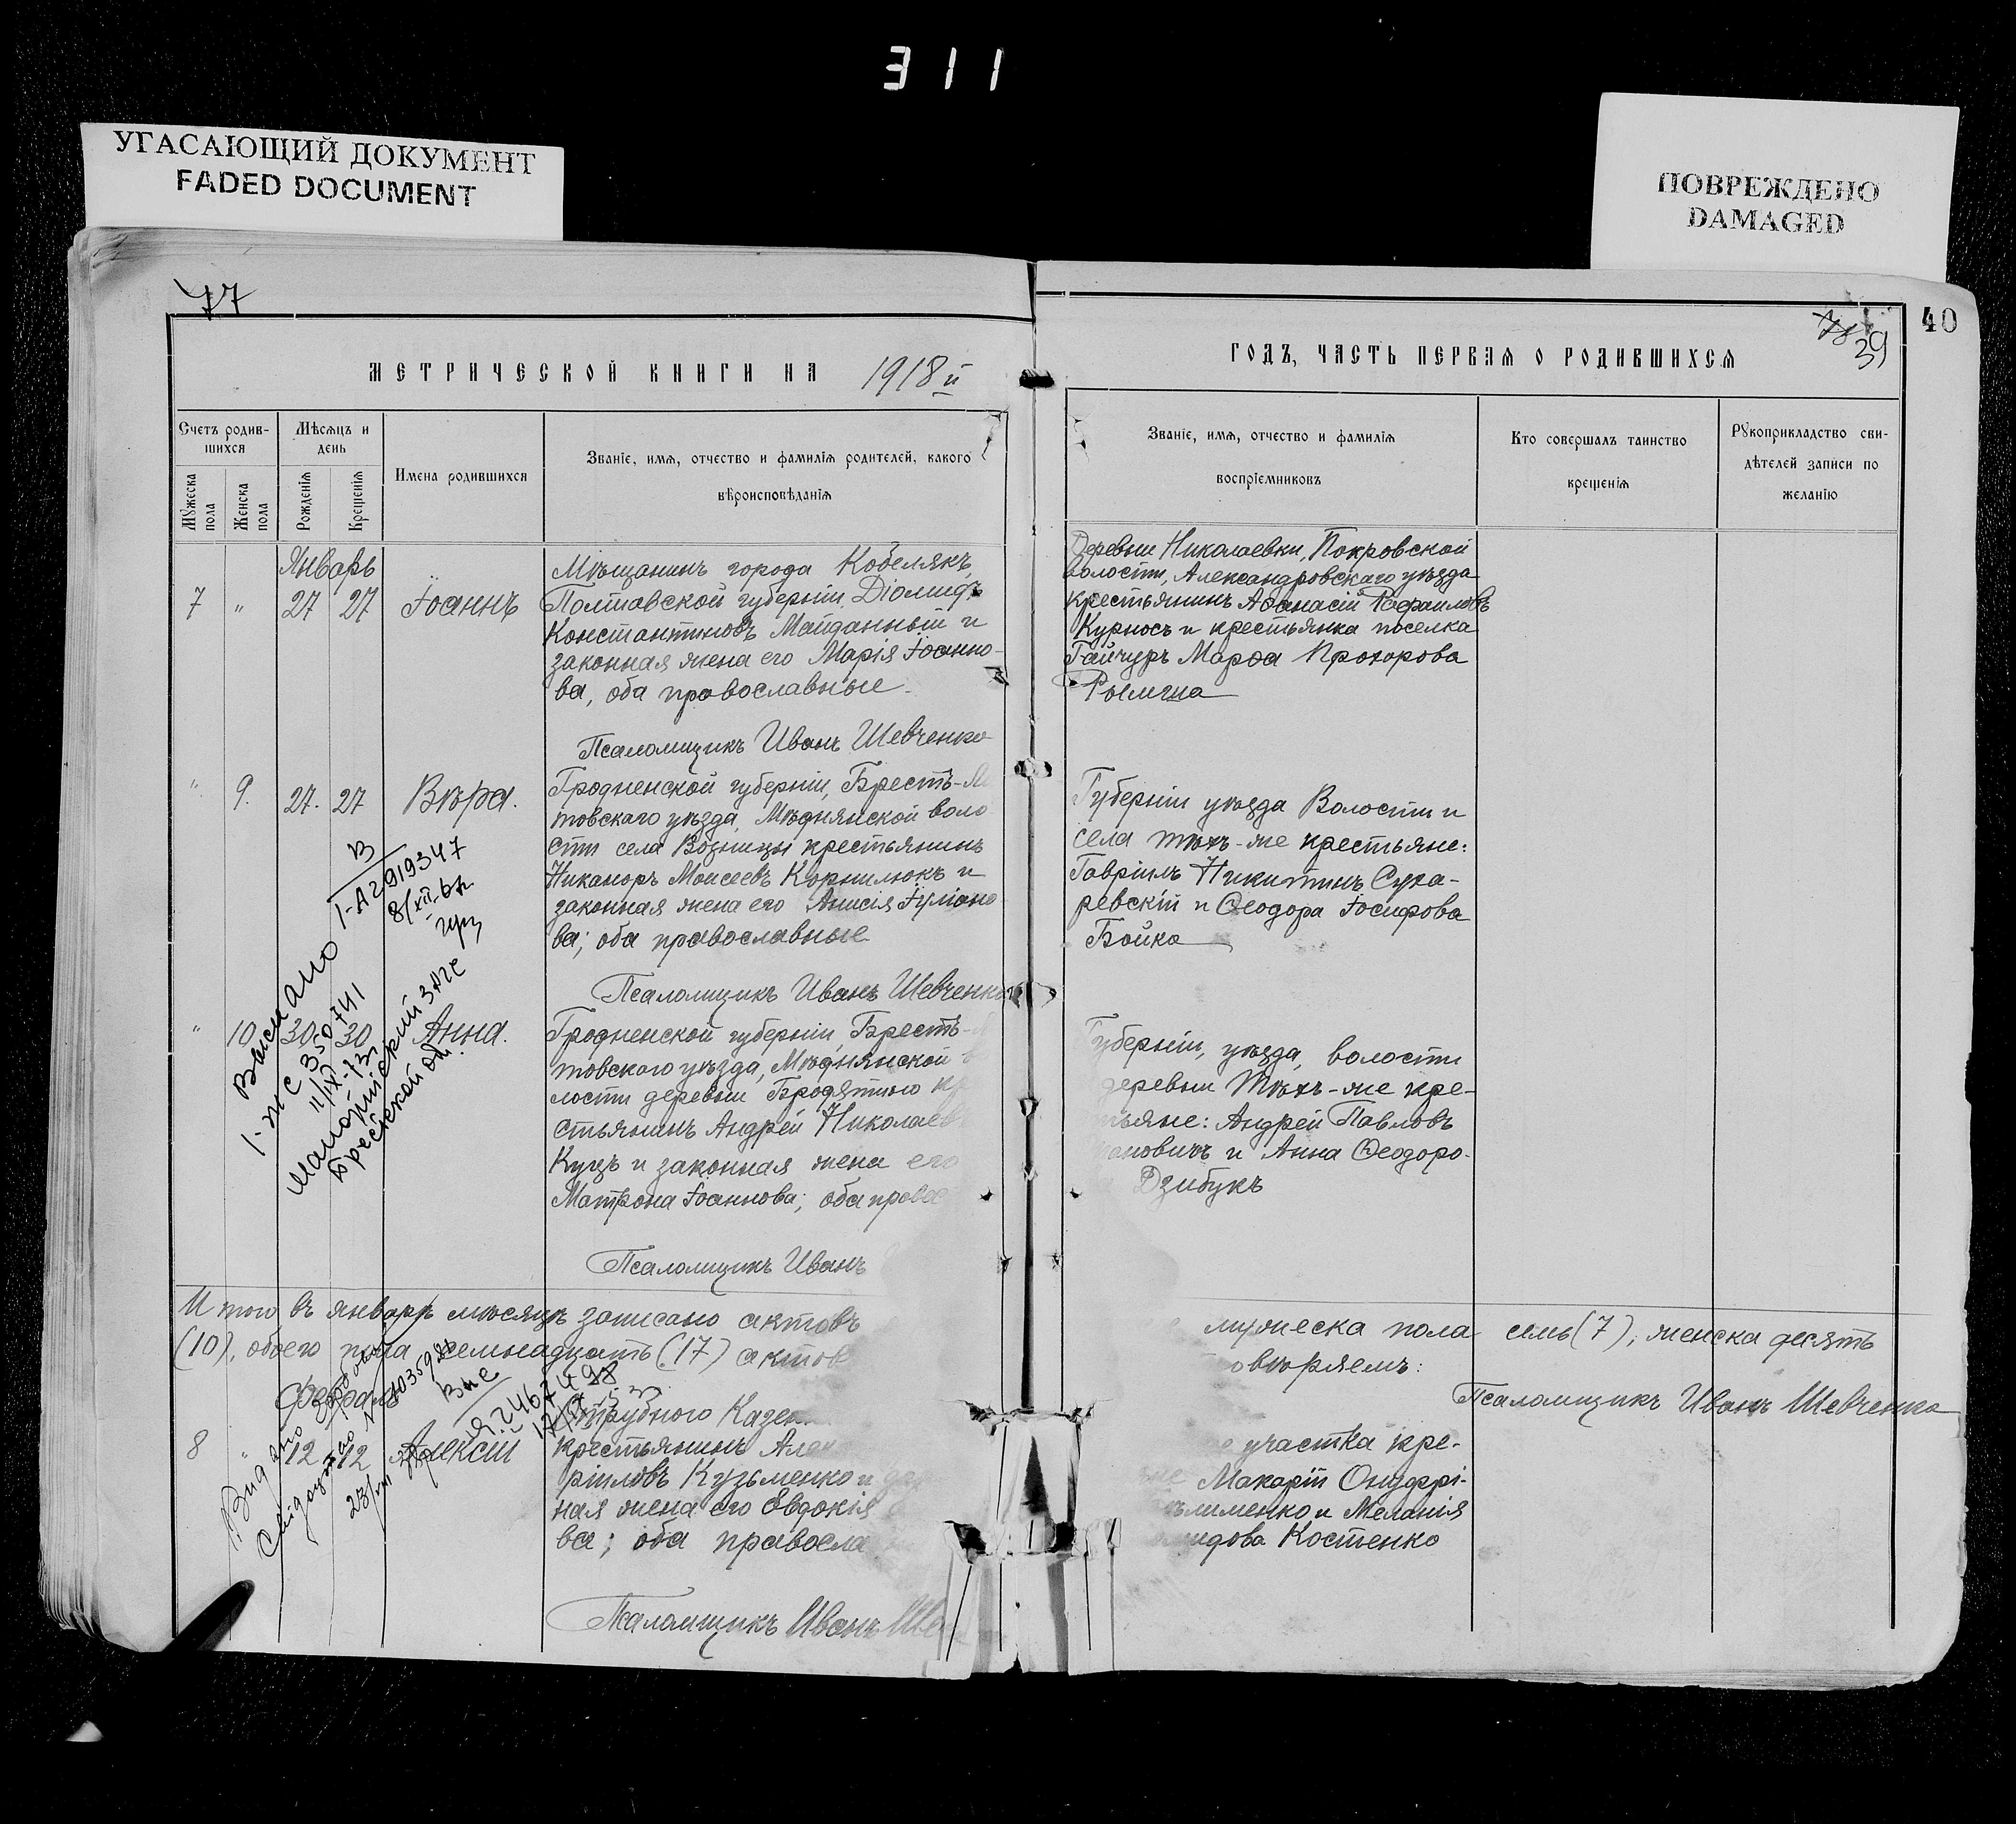 311
УГАСАЮЩИЙ ДОКУМЕНТ
FADED DOCUMENT
ПОВРЕЖДЕНО
DAMAGED
77
39
40
МЕТРИЧЕСКОЙ КНИГИ НА 1918 й
ГОДЪ, ЧАСТЬ ПЕРВАЯ О РОДИВШИХСЯ
Счетъ родив-
шихся
Мужеска
пола
Женска
пола
Мѣсяцъ и
день
Рожденія
Крещенія
Имена родившихся
Званіе, имя, отчество и фамилія родителей, какого
вѣроисповѣданія
Званіе, имя, отчество и фамилія
воспріемниковъ
Кто совершалъ таинство
крещенія
Рукоприкладство сви-
дѣтелей записи по
желанію
Январь
7 " 27 27 Іоаннъ
Мѣщанинъ города Кобелякъ,
Полтавской губерніи, Діомидъ
Константиновъ Майданный и
законная жена его Марія Іоанно-
ва, оба православные.
Псаломщикъ Иванъ Шевченко
Деревни Николаевки, Покровской
волости, Александровскаго уѣзда
крестьянинъ Аѳанасій
Курносъ и крестьянка поселка
Гайчуръ Марѳа Прохорова
" 9. 27. 27 Вѣра.
Гродненской губерніи, Брестъ-Ли
товскаго уѣзда, Мѣднянской воло
сти села Возницы крестьянинъ
Никаноръ Моисеевъ Корнилюкъ и
законная жена его Анисія Іуліано
ва; оба православные
Псаломщикъ Иванъ Шевченко
Губерніи уѣзда Волости и
села тѣхъ-же крестьяне:
Гавріилъ Никитинъ Суха-
ревскій и Ѳеодора Іосифова
Бойко
Выслано
I-А2919347
I-ЖС 350741
11/IX-73г
Малоритский ЗАГС
Брестской обл.
" 10 30 30 Анна.
Гродненской губерніи, Брестъ-
товского уѣзда, Мѣднянской
лости деревни Бродятино кр
стьянинъ Андрей Николаев
Куцъ и законная жена его
Матрона Іоаннова; оба правос
Псаломщикъ Иванъ
Губерніи, уѣзда, волости
деревни тѣхъ-же кре-
тьяне: Андрей Павловъ
ановичъ и Анна Ѳеодоро-
Дзибукъ
Итого въ январѣ мѣсяцѣ записано актовъ
мужеска пола семь (7), женска десять
(10), обоего пола семнадцать (17) актов
овѣряемъ:
Псаломщикъ Иванъ Шевченко
Февраль
8 " 12 12 Алексій
Отрубного Казен
крестьянинъ Алек
ріиловъ Кузьменко и
ная жена его Евдокія
ва; оба правосла
Псаломщикъ Иванъ Ше
участка кре-
не Макарій Онуфрі-
лименко и Меланія
идова Костенко